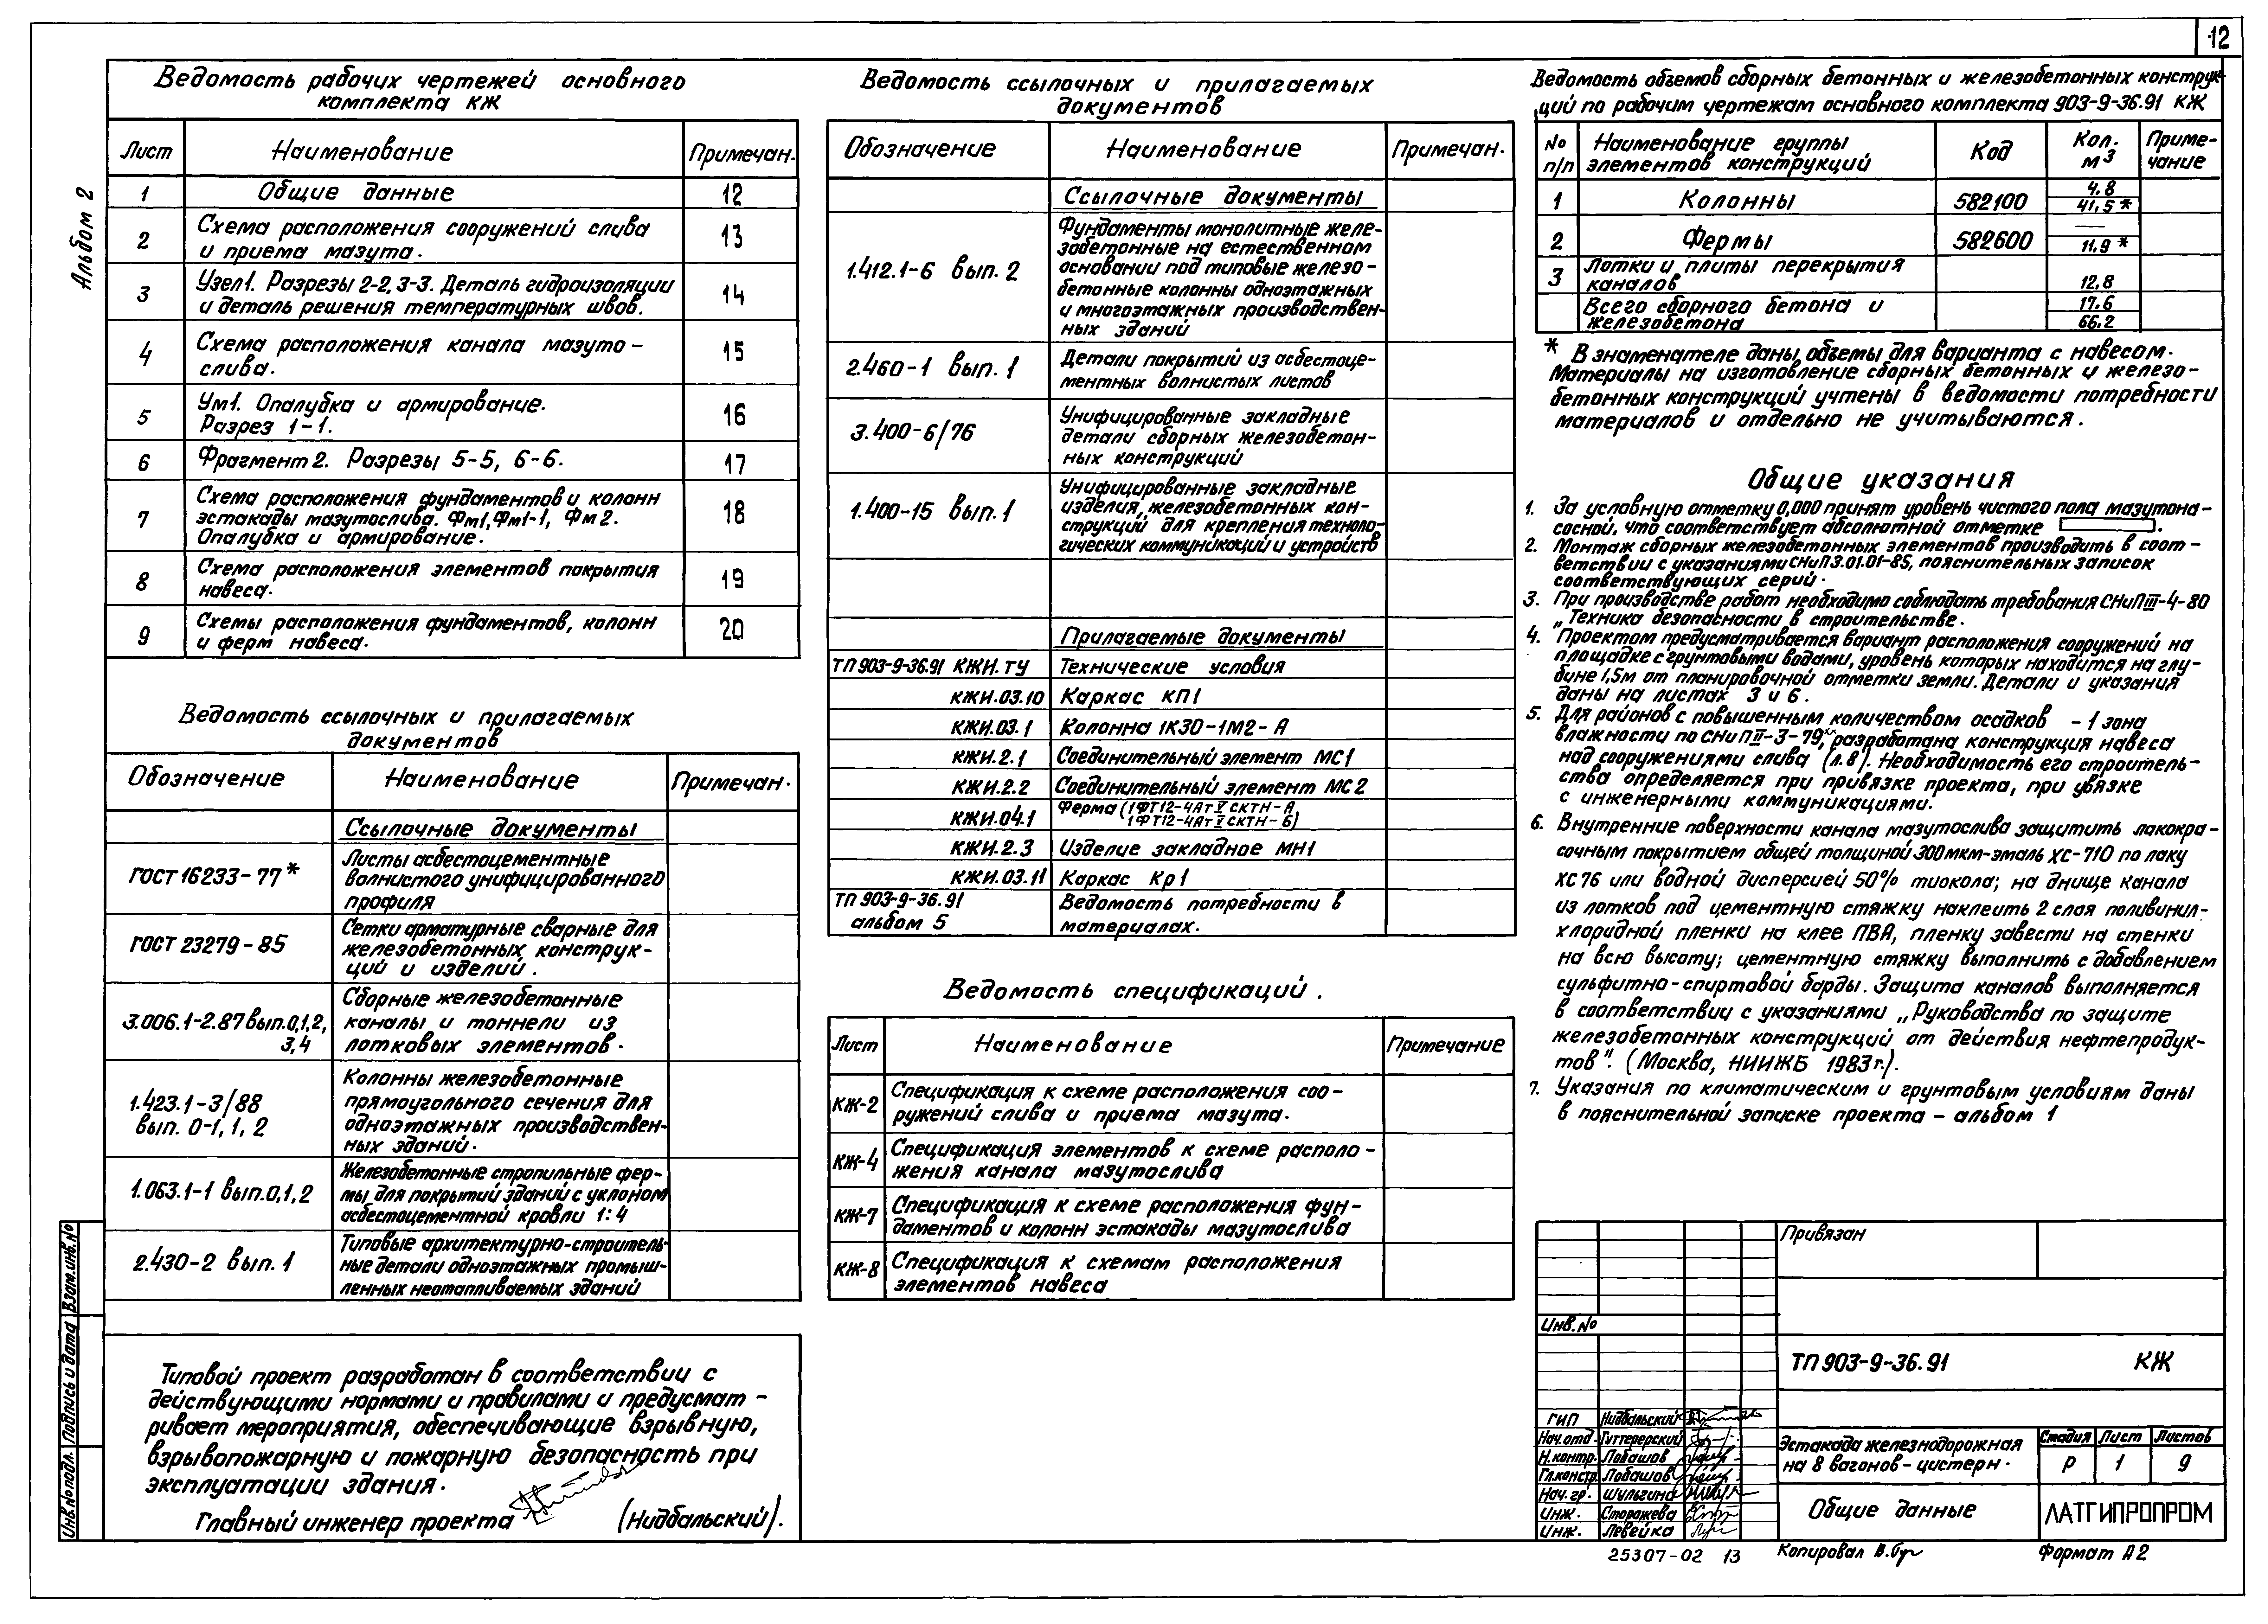 12
Альбом 2
Ведомость рабочих чертежей основного
комплекта КЖ
Лист Наименование Примечан.
1 Общие данные 12
2 Схема расположения сооружений слива
и приема мазута. 13
3 Узел1. Разрезы 2-2, 3-3. Деталь гидроизоляции
и деталь решения температурных швов. 14
4 Схема расположения канала мазуто-
слива. 15
5 Ум1. Опалубка и армирование.
Разрез 1-1. 16
6 Фрагмент 2. Разрезы 5-5, 6-6. 17
7 Схема расположения фундаментов и колонн
эстакады мазутослива. Фм1, Фм1-1, Фм2.
Опалубка и армирование. 18
8 Схема расположения элементов покрытия
навеса. 19
9 Схемы расположения фундаментов, колонн
и ферм навеса. 20
Ведомость ссылочных и прилагаемых
документов
Обозначение Наименование Примечан.
Ссылочные документы
ГОСТ 16233-77* Листы асбестоцементные
волнистого унифицированного
профиля
ГОСТ 23279-85 Сетки арматурные сварные для
железобетонных конструк-
ций и изделий.
3.006.1-2.87 вып.0,1,2,
3,4
Сборные железобетонные
каналы и тоннели из
лотковых элементов.
1.423.1-3/88
вып. 0-1, 1, 2
Колонны железобетонные
прямоугольного сечения для
одноэтажных производствен-
ных зданий.
1.063.1-1 вып.0,1,2 Железобетонные стропильные фер-
мы для покрытий зданий с уклоном
асбестоцементной кровли 1:4
2.430-2 вып. 1 Типовые архитектурно-строитель-
ные детали одноэтажных промыш-
ленных неотапливаемых зданий
Типовой проект разработан в соответствии с
действующими нормами и правилами и предусмат-
ривает мероприятия, обеспечивающие взрывную,
взрывопожарную и пожарную безопасность при
эксплуатации здания.
Главный инженер проекта (Нидбальский).
Инв.№подл. Подпись и дата Взам.инв.№
Ведомость ссылочных и прилагаемых
документов
Обозначение Наименование Примечан.
Ссылочные документы
1.412.1-6 вып. 2 Фундаменты монолитные желе-
забетонные на естественном
основании под типовые железо-
бетонные колонны одноэтажных
и многоэтажных производствен-
ных зданий
2.460-1 вып. 1 Детали покрытий из асбестоце-
ментных волнистых листов
3.400-6/76 Унифицированные закладные
детали сборных железобетон-
ных конструкций
1.400-15 вып. 1 Унифицированные закладные
изделия, железобетонных кон-
струкций для крепления техноло-
гических коммуникаций и устройств
Прилагаемые документы
ТП 903-9-36.91 КЖИ.ТУ Технические условия
КЖИ.03.10 Каркас КП1
КЖИ.03.1 Колонна 1К30-1М2-А
КЖИ.2.1 Соединительный элемент МС1
КЖИ.2.2 Соединительный элемент МС2
КЖИ.04.1 Ферма (1ФТ12-4АтV СКТН-А
1ФТ12-4АтV СКТН-Б)
КЖИ.2.3 Изделие закладное МН1
КЖИ.03.11 Каркас Кр1
ТП 903-9-36.91
альбом 5
Ведомость потребности в
материалах.
Ведомость спецификаций.
Лист Наименование Примечание
КЖ-2 Спецификация к схеме расположения соо-
ружений слива и приема мазута.
КЖ-4 Спецификация элементов к схеме располо-
жения канала мазутослива
КЖ-7 Спецификация к схеме расположения фун-
даментов и колонн эстакады мазутослива
КЖ-8 Спецификация к схемам расположения
элементов навеса
Ведомость объемов сборных бетонных и железобетонных конструк-
ций по рабочим чертежам основного комплекта 903-9-36.91 КЖ
№ п/п Наименование группы
элементов конструкций Код Кол. м3 Приме-
чание
1 Колонны 582100 4.8
41,5*
2 Фермы 582600 —
11,9*
3 Лотки и плиты перекрытия
каналов 12,8
Всего сборного бетона и
железобетона 17.6
66.2
* В знаменателе даны объемы для варианта с навесом.
Материалы на изготовление сборных бетонных и железо-
бетонных конструкций учтены в ведомости потребности
материалов и отдельно не учитываются.
Общие указания
1. За условную отметку 0,000 принят уровень чистого пола мазутона-
сосной, что соответствует абсолютной отметке .
2. Монтаж сборных железобетонных элементов производить в соот-
ветствии с указаниями СНиП 3.01.01-85, пояснительных записок
соответствующих серий.
3. При производстве работ необходимо соблюдать требования СНиП III-4-80
„Техника безопасности в строительстве.
4. Проектом предусматривается вариант расположения сооружений на
площадке с грунтовыми водами, уровень которых находится на глу-
бине 1,5м от планировочной отметки земли. Детали и указания
даны на листах 3 и 6.
5. Для районов с повышенным количеством осадков - 1 зона
влажности по СНиП II-3-79,** разработана конструкция навеса
над сооружениями слива (л.8). Необходимость его строитель-
ства определяется при привязке проекта, при увязке
с инженерными коммуникациями.
6. Внутренние поверхности канала мазутослива защитить лакокра-
сочным покрытием общей толщиной 300мкм-эмаль ХС-710 по лаку
ХС76 или водной дисперсией 50% тиокола; на днище канала
из лотков под цементную стяжку наклеить 2 слоя поливинил-
хлоридной пленки на клее ПВА, пленку завести на стенки
на всю высоту; цементную стяжку выполнить с добавлением
сульфитно-спиртовой барды. Защита каналов выполняется
в соответствии с указаниями „Руководства по защите
железобетонных конструкций от действия нефтепродук-
тов". (Москва, НИИЖБ 1983г.).
7. Указания по климатическим и грунтовым условиям даны
в пояснительной записке проекта - альбом 1
Привязан
Инв.№
ТП 903-9-36.91 КЖ
ГИП Нидбальский
Нач.отд. Гуттерерский
Н.контр. Лобашов
Гл.констр. Лобашов
Нач.гр. Шульгина
Инж. Сторожева
Инж. Левейка
Эстакада железнодорожная
на 8 вагонов-цистерн.
Стадия Лист Листов
Р 1 9
Общие данные
ЛАТГИПРОПРОМ
25307-02 13
Копировал
Формат А2